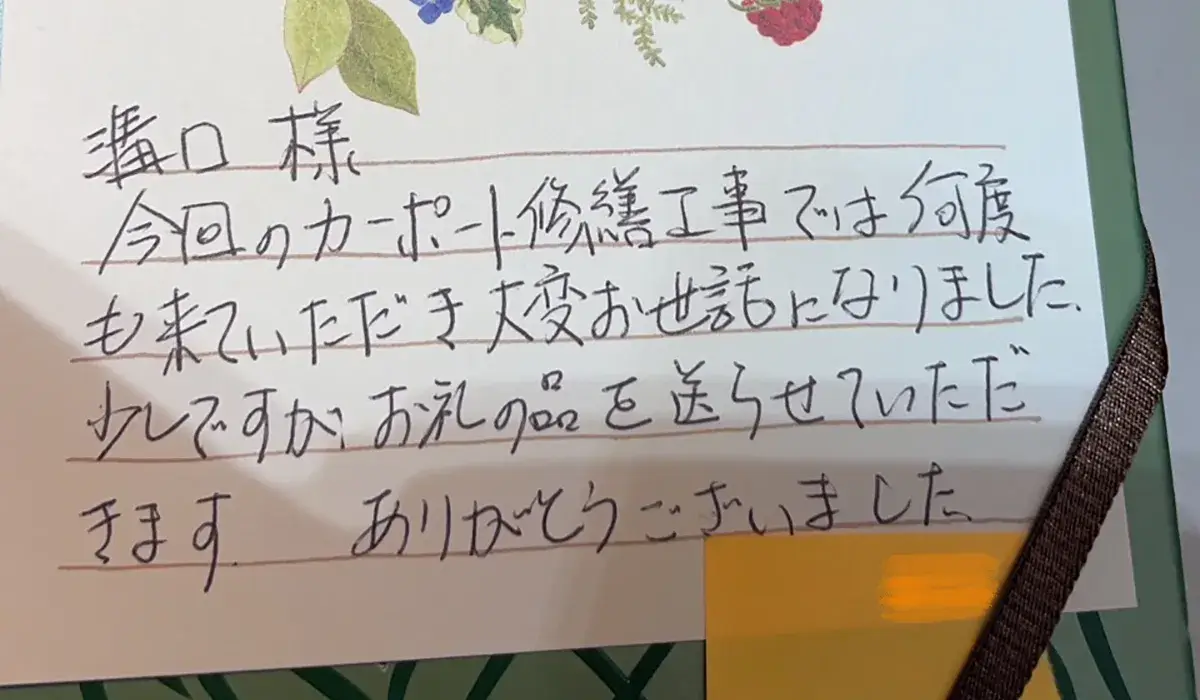 溝口 様
今回のカーポート修繕工事では何度
も来ていただき大変お世話になりました.
少しですが、お礼の品を送らせていただ
きます. ありがとうございました.